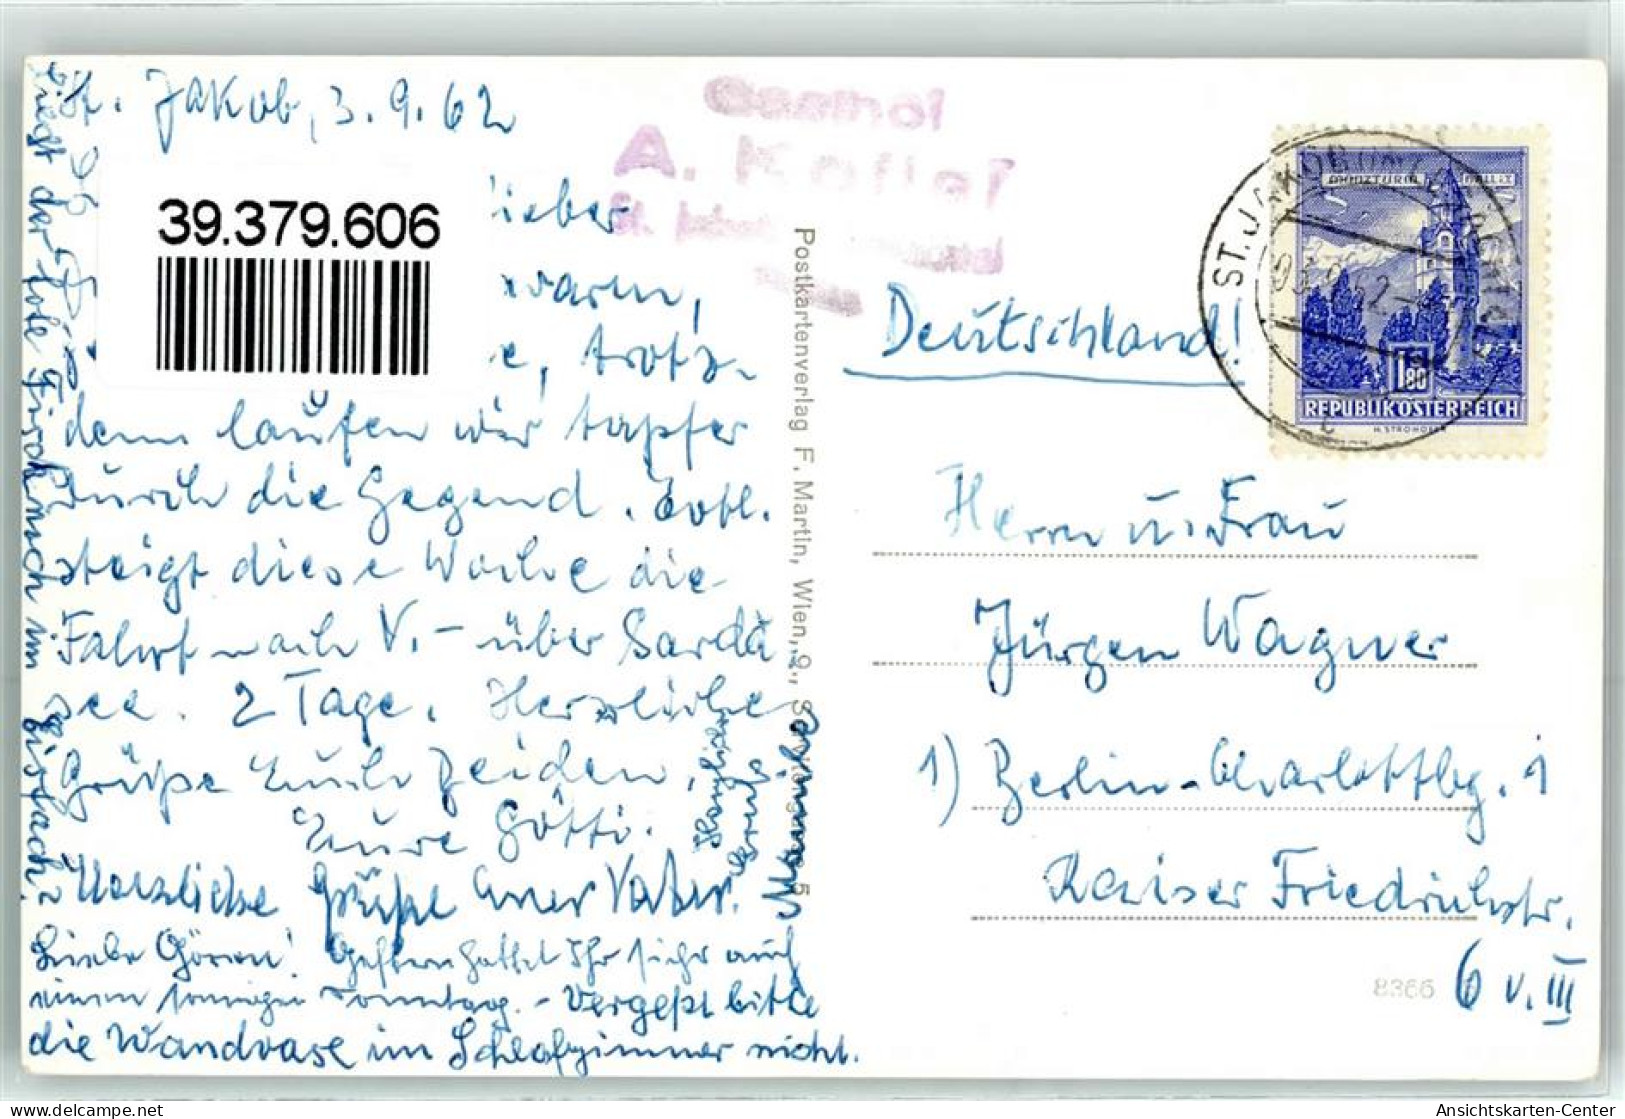 St. Jakob, 3.9.62
39.379.606
lieber
warm,
trotz-
dem laufen wir tapfer
durch die Gegend. Evtl.
steigt diese Woche die
Fahrt nach V. - über Garda
see. 2 Tage. Herzliche
Grüße Euch Beiden,
Eure Götti.
Herzliche Grüße Euer Vater.
Liebe Gören! Gestern hattet Ihr sicher auch
einen sonnigen Sonntag. - Vergeßt bitte
die Wandvase im Schlafzimmer nicht.
liegt der tote Fisch noch im
Gasthof
A. Kofler
St. Jakob
Postkartenverlag F. Martin, Wien, 9., Servitengasse 5
Deutschland!
ST. JAKOB
MÜNZTURM HALL
1.80
REPUBLIK ÖSTERREICH
H. STROHOFER
Herrn u. Frau
Jürgen Wagner
1) Berlin-Charlottbg. 1
Kaiser Friedrichstr.
6 v. III
8366
Ansichtskarten-Center